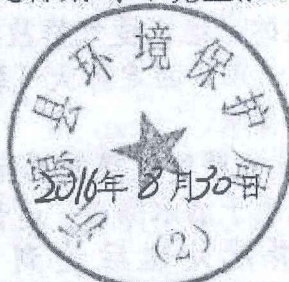 沂源县环境保护局
2016年8月30日
(2)